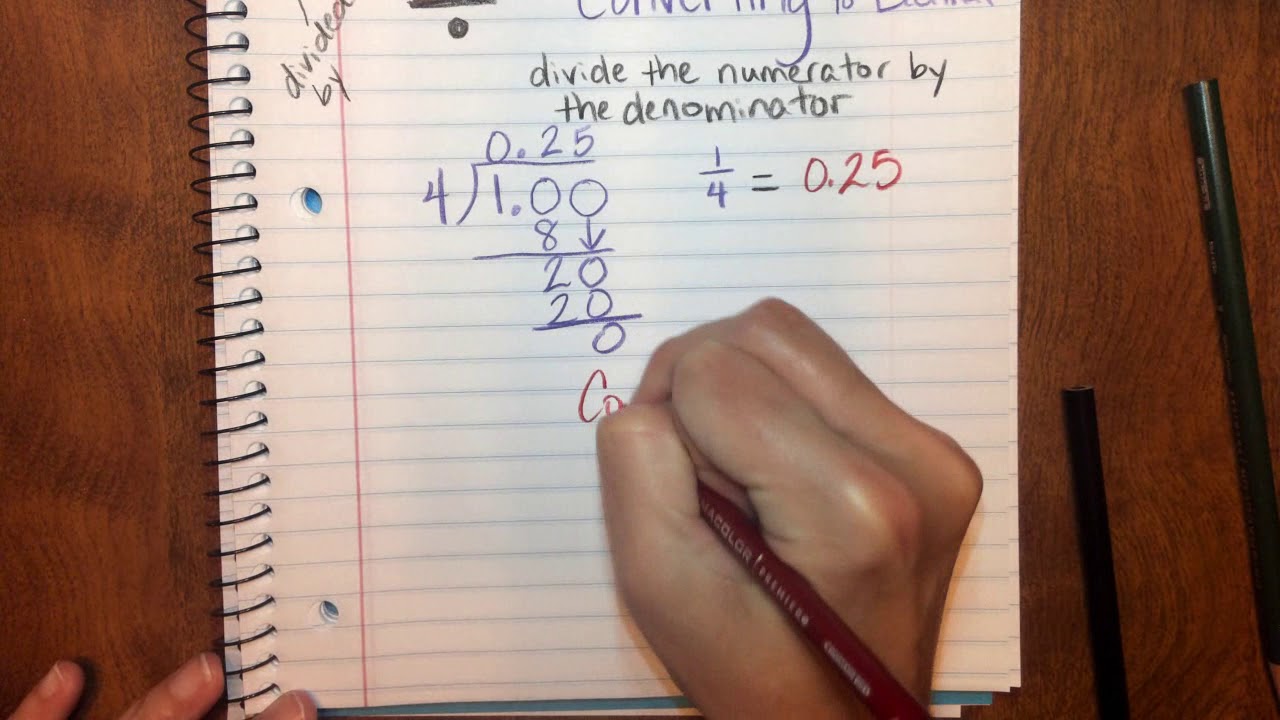 divided
by
Converting to Decimal
divide the numerator by
the denominator
0.25
4)1.00
8↓
20
20
0
1/4 = 0.25
Co
PREMIER